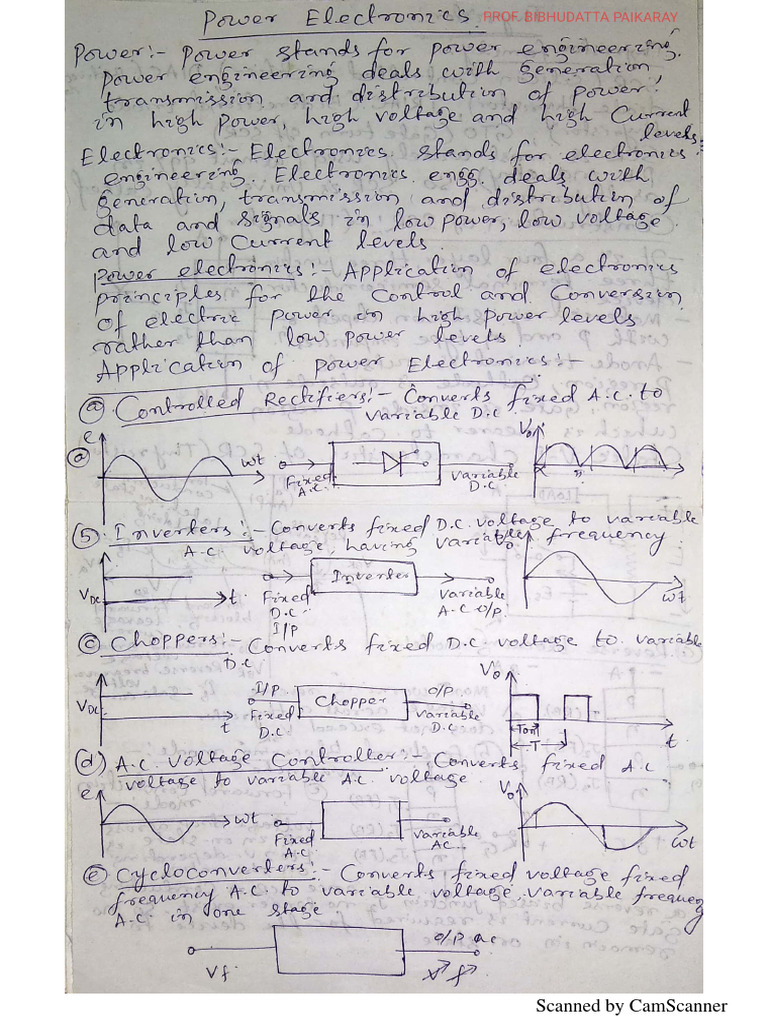 Power Electronics. PROF. BIBHUDATTA PAIKARAY
Power:- Power stands for power engineering.
Power engineering deals with generation,
transmission and distribution of power
in high power, high voltage and high current
levels.
Electronics:- Electronics stands for electronics
engineering. Electronics engg. deals with
generation, transmission and distribution of
data and signals in low power, low voltage
and low current levels.
Power electronics:- Application of electronics
principles for the control and conversion
of electric power in high power levels
rather than low power levels.
Application of power Electronics:-
(a) Controlled Rectifiers:- Converts fixed A.C. to
variable D.C
(a) e wt Fixed A.C. Variable D.C V₀
(b) Inverters:- Converts fixed D.C. voltage to variable
A.C. voltage, having variable frequency.
VDC t Fixed D.C. I/P Inverter Variable A.C O/P. V₀ wt
(c) Choppers:- Converts fixed D.C. voltage to variable
D.C
VDC t I/P Fixed D.C Chopper O/P Variable D.C V₀ Ton T t
(d) A.C. Voltage Controller:- Converts fixed A.C
voltage to variable AC voltage.
e wt Fixed A.C Variable AC V₀ wt
(e) Cycloconverters:- Converts fixed voltage fixed
frequency A.C. to variable voltage variable frequency
A.C. in one stage
Vf O/P ac V f
Scanned by CamScanner